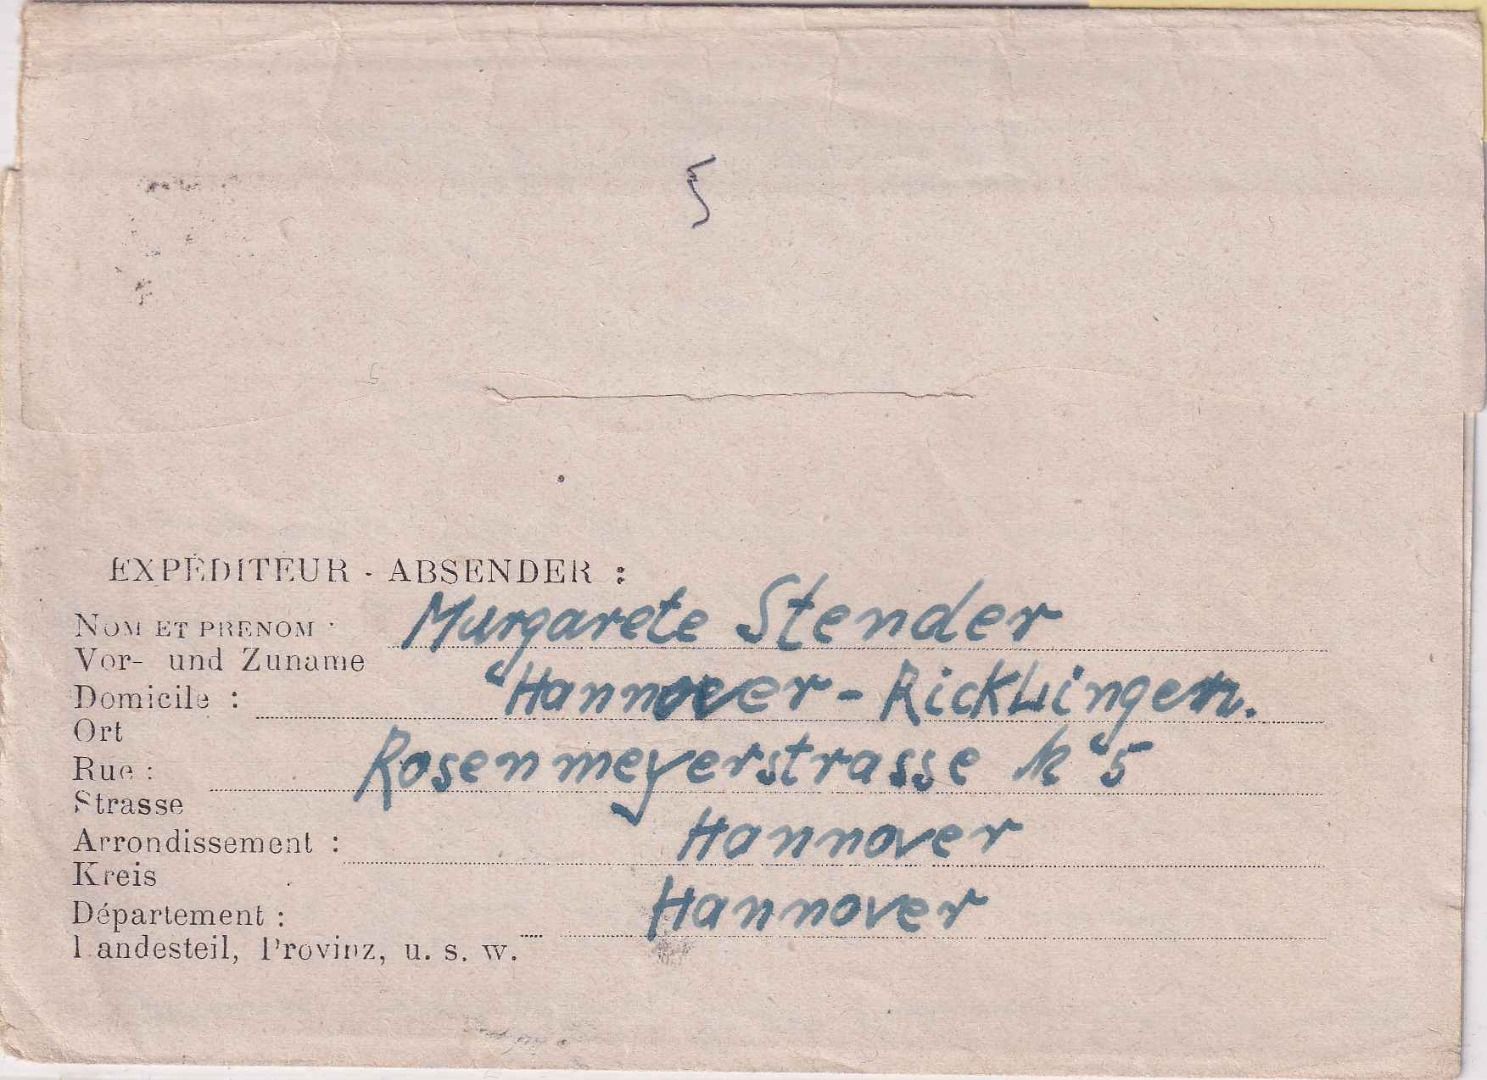 5
EXPÉDITEUR - ABSENDER :
NOM ET PRENOM : Margarete Stender
Vor- und Zuname
Domicile : Hannover - Ricklingen.
Ort
Rue : Rosenmeyerstrasse 5
Strasse
Arrondissement : Hannover
Kreis
Département : Hannover
Landesteil, Provinz, u. s. w.